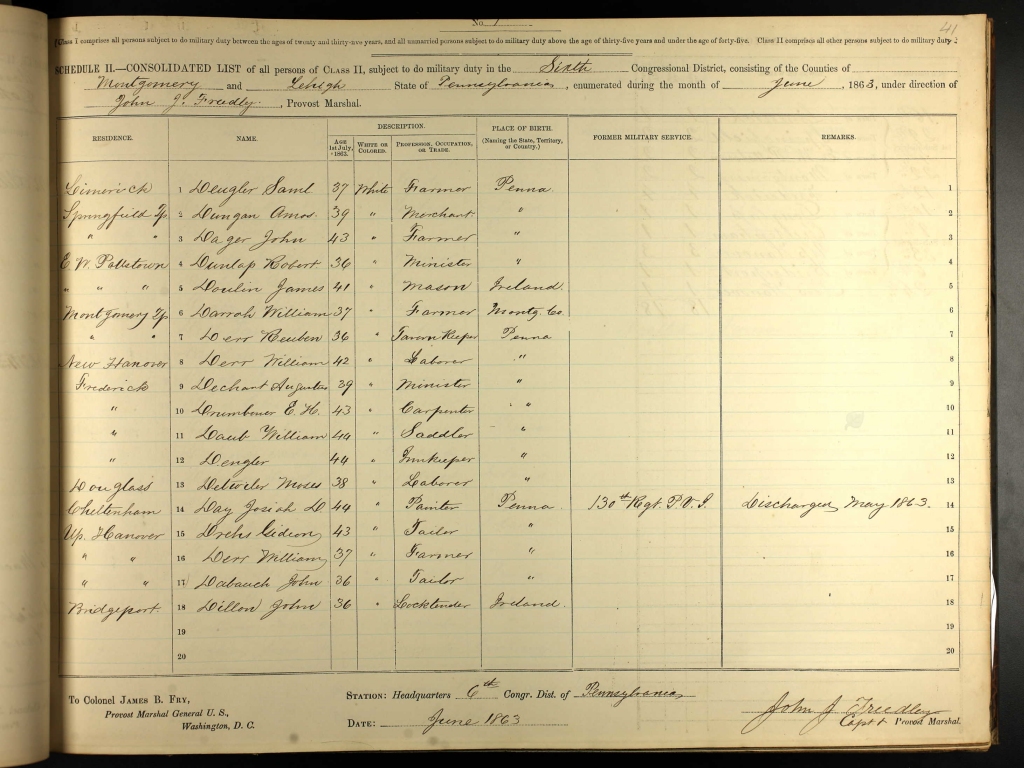 No. 1
41
Class I comprises all persons subject to do military duty between the ages of twenty and thirty-five years, and all unmarried persons subject to do military duty above the age of thirty-five years and under the age of forty-five. Class II comprises all other persons subject to do military duty
SCHEDULE II.—CONSOLIDATED LIST of all persons of CLASS II, subject to do military duty in the Sixth Congressional District, consisting of the Counties of
Montgomery and Lehigh State of Pennsylvania, enumerated during the month of June, 1863, under direction of
John J. Freedly, Provost Marshal.
RESIDENCE. NAME. DESCRIPTION. PLACE OF BIRTH. (Naming the State, Territory, or Country.) FORMER MILITARY SERVICE. REMARKS.
AGE 1st July, 1863. WHITE OR COLORED. PROFESSION, OCCUPATION, OR TRADE.
Limerick 1 Dengler Saml 37 White Farmer Penna 1
Springfield Tp. 2 Dungan Amos 39 " Merchant " 2
" " 3 Dager John 43 " Farmer " 3
E. W. Pottstown 4 Dunlap Robert 36 " Minister " 4
" " " 5 Doulin James 41 " Mason Ireland 5
Montgomery Tp 6 Darrah William 37 " Farmer Montg. Co 6
" " 7 Derr Reuben 36 " Tavern Keeper Penna 7
New Hanover 8 Derr William 42 " Laborer " 8
Frederick 9 Dechant Augustus 39 " Minister " 9
" 10 Drumbower E. H. 43 " Carpenter " 10
" 11 Daub William 44 " Saddler " 11
" 12 Dengler 44 " Innkeeper " 12
Douglass 13 Detweler Moses 38 " Laborer 13
Cheltenham 14 Day Josiah D 44 " Painter Penna 130th Regt. P.V.I. Discharged May 1863. 14
Up. Hanover 15 Drehs Gideon 43 " Tailor " 15
" " 16 Derr William 37 " Farmer " 16
" " 17 Dabauch John 36 " Tailor " 17
Bridgeport 18 Dillon John 36 " Locktender Ireland. 18
19 19
20 20
To Colonel JAMES B. FRY,
Provost Marshal General U. S.,
Washington, D. C.
STATION: Headquarters 6th Congr. Dist. of Pennsylvania
DATE: June 1863
John J Freedly
Capt & Provost Marshal.